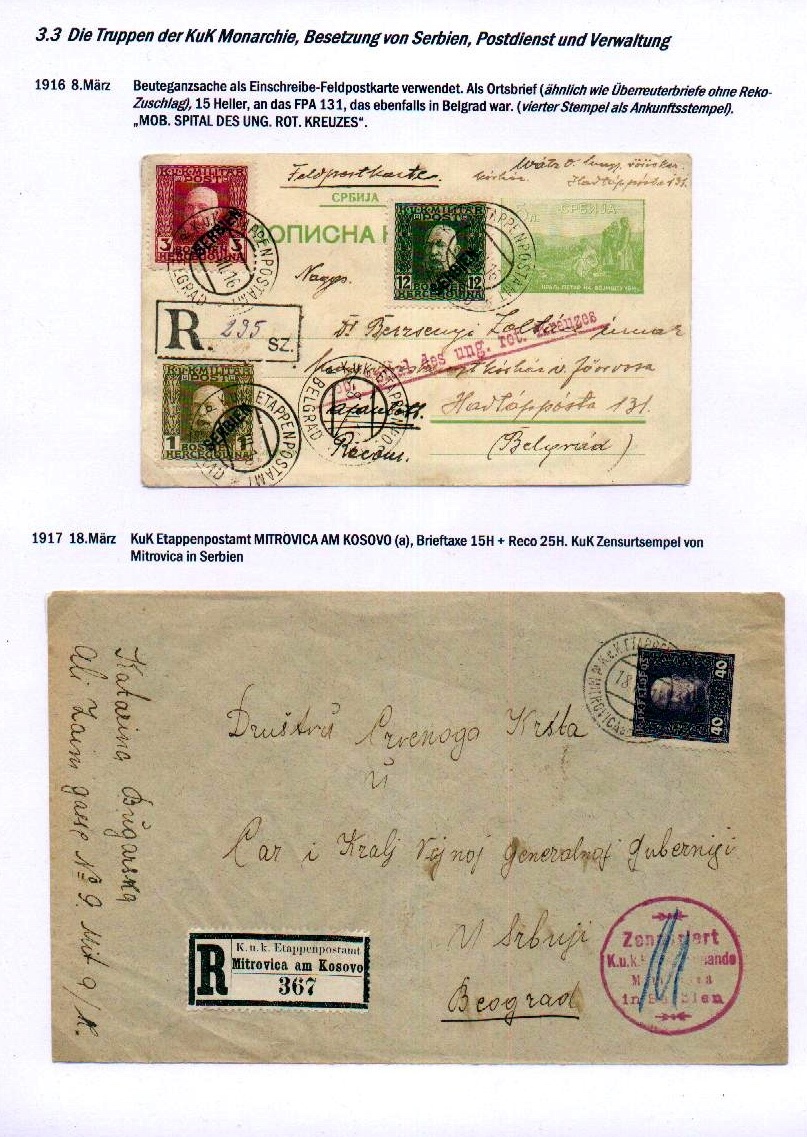 3.3 Die Truppen der KuK Monarchie, Besetzung von Serbien, Postdienst und Verwaltung
1916 8.März Beuteganzsache als Einschreibe-Feldpostkarte verwendet. Als Ortsbrief (ähnlich wie Überreuterbriefe ohne Reko-
Zuschlag), 15 Heller, an das FPA 131, das ebenfalls in Belgrad war. (vierter Stempel als Ankunftsstempel).
„MOB. SPITAL DES UNG. ROT. KREUZES“.
K.u.K. MILITÄR
POST
3 3
BOSNIEN
HERCEGOVINA
SERBIEN
Feldpostkarte.
Hadtáppósta 131.
СРБИЈА
ОПИСНА
K.u.K. MILITÄR
POST
12 12
BOSNIEN
HERCEGOVINA
SERBIEN
СРБИЈА
ETAPPENPOSTAMT
BELGRAD
Nagys.
R 235 SZ.
Dr Berzsenyi Zoltán
des ung. rot. Kreuzes
K.u.K. MILITÄR
POST
1 1
BOSNIEN
HERCEGOVINA
SERBIEN
ETAPPENPOSTAMT
BELGRAD
ajánlott.
Recom.
Hadtáppósta 131.
(Belgrád)
1917 18.März KuK Etappenpostamt MITROVICA AM KOSOVO (a), Brieftaxe 15H + Reco 25H. KuK Zensurtsempel von
Mitrovica in Serbien
Katarina Bugarska
Ali Zaim gasse № 9. Mit 9/K.
40 40
Društvu Crvenoga Krsta
U
Car i Kralj Vojnoj generalnoj guberniji
U Srbiji
Beograd
R
K.u.k. Etappenpostamt
Mitrovica am Kosovo
367
Zensuriert
K.u.k.
in Serbien